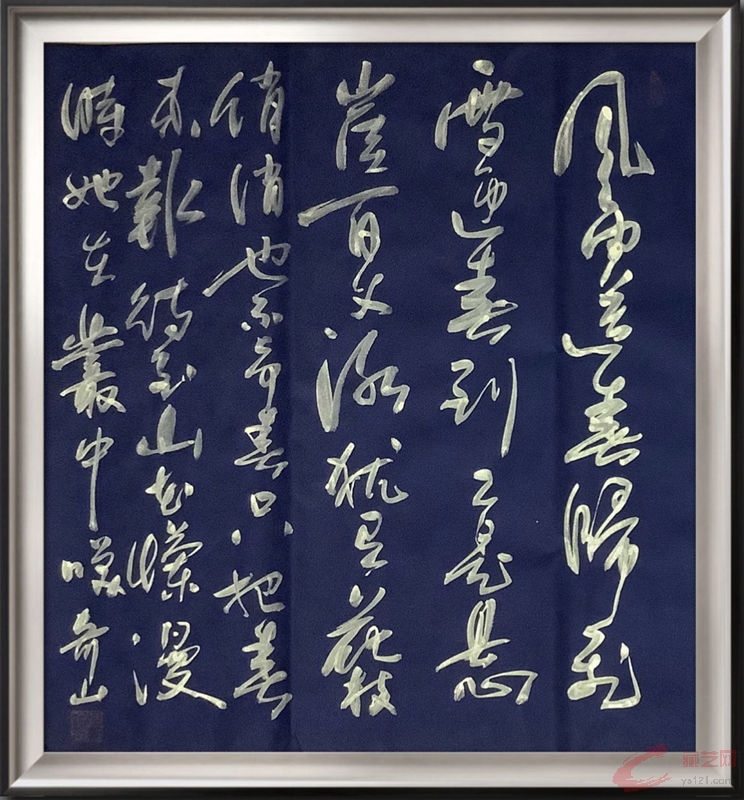 風雨送春歸飛
雪迎春到已是懸
崖百丈冰猶有花枝
俏俏也不争春只把春
来報待到山花爛漫
時她在叢中咲